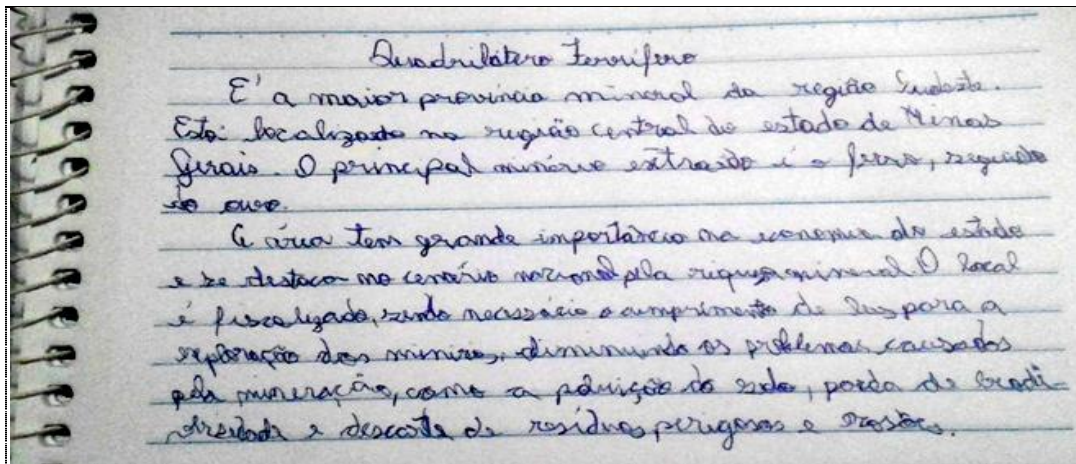 Quadrilátero Ferrífero
E' a maior província mineral da região Sudeste.
Está localizado na região central do estado de Minas
Gerais. O principal minério extraído é o ferro, seguido
do ouro.
A área tem grande importância na economia do estado
e se destaca no cenário nacional pela riqueza mineral. O local
é fiscalizado, sendo necessário o cumprimento de leis para a
exploração dos minérios, diminuindo os problemas causados
pela mineração, como a poluição do solo, perda de biodi-
versidade e descarte de resíduos perigosos e erosões.